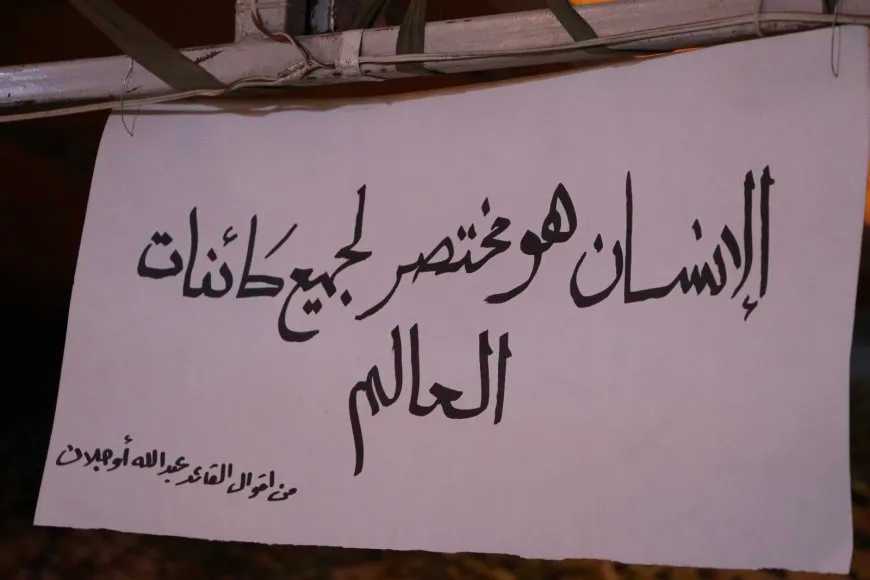 الإنسان هو مختصر لجميع كائنات
العالم
من اقوال القائد عبدالله أوجلان